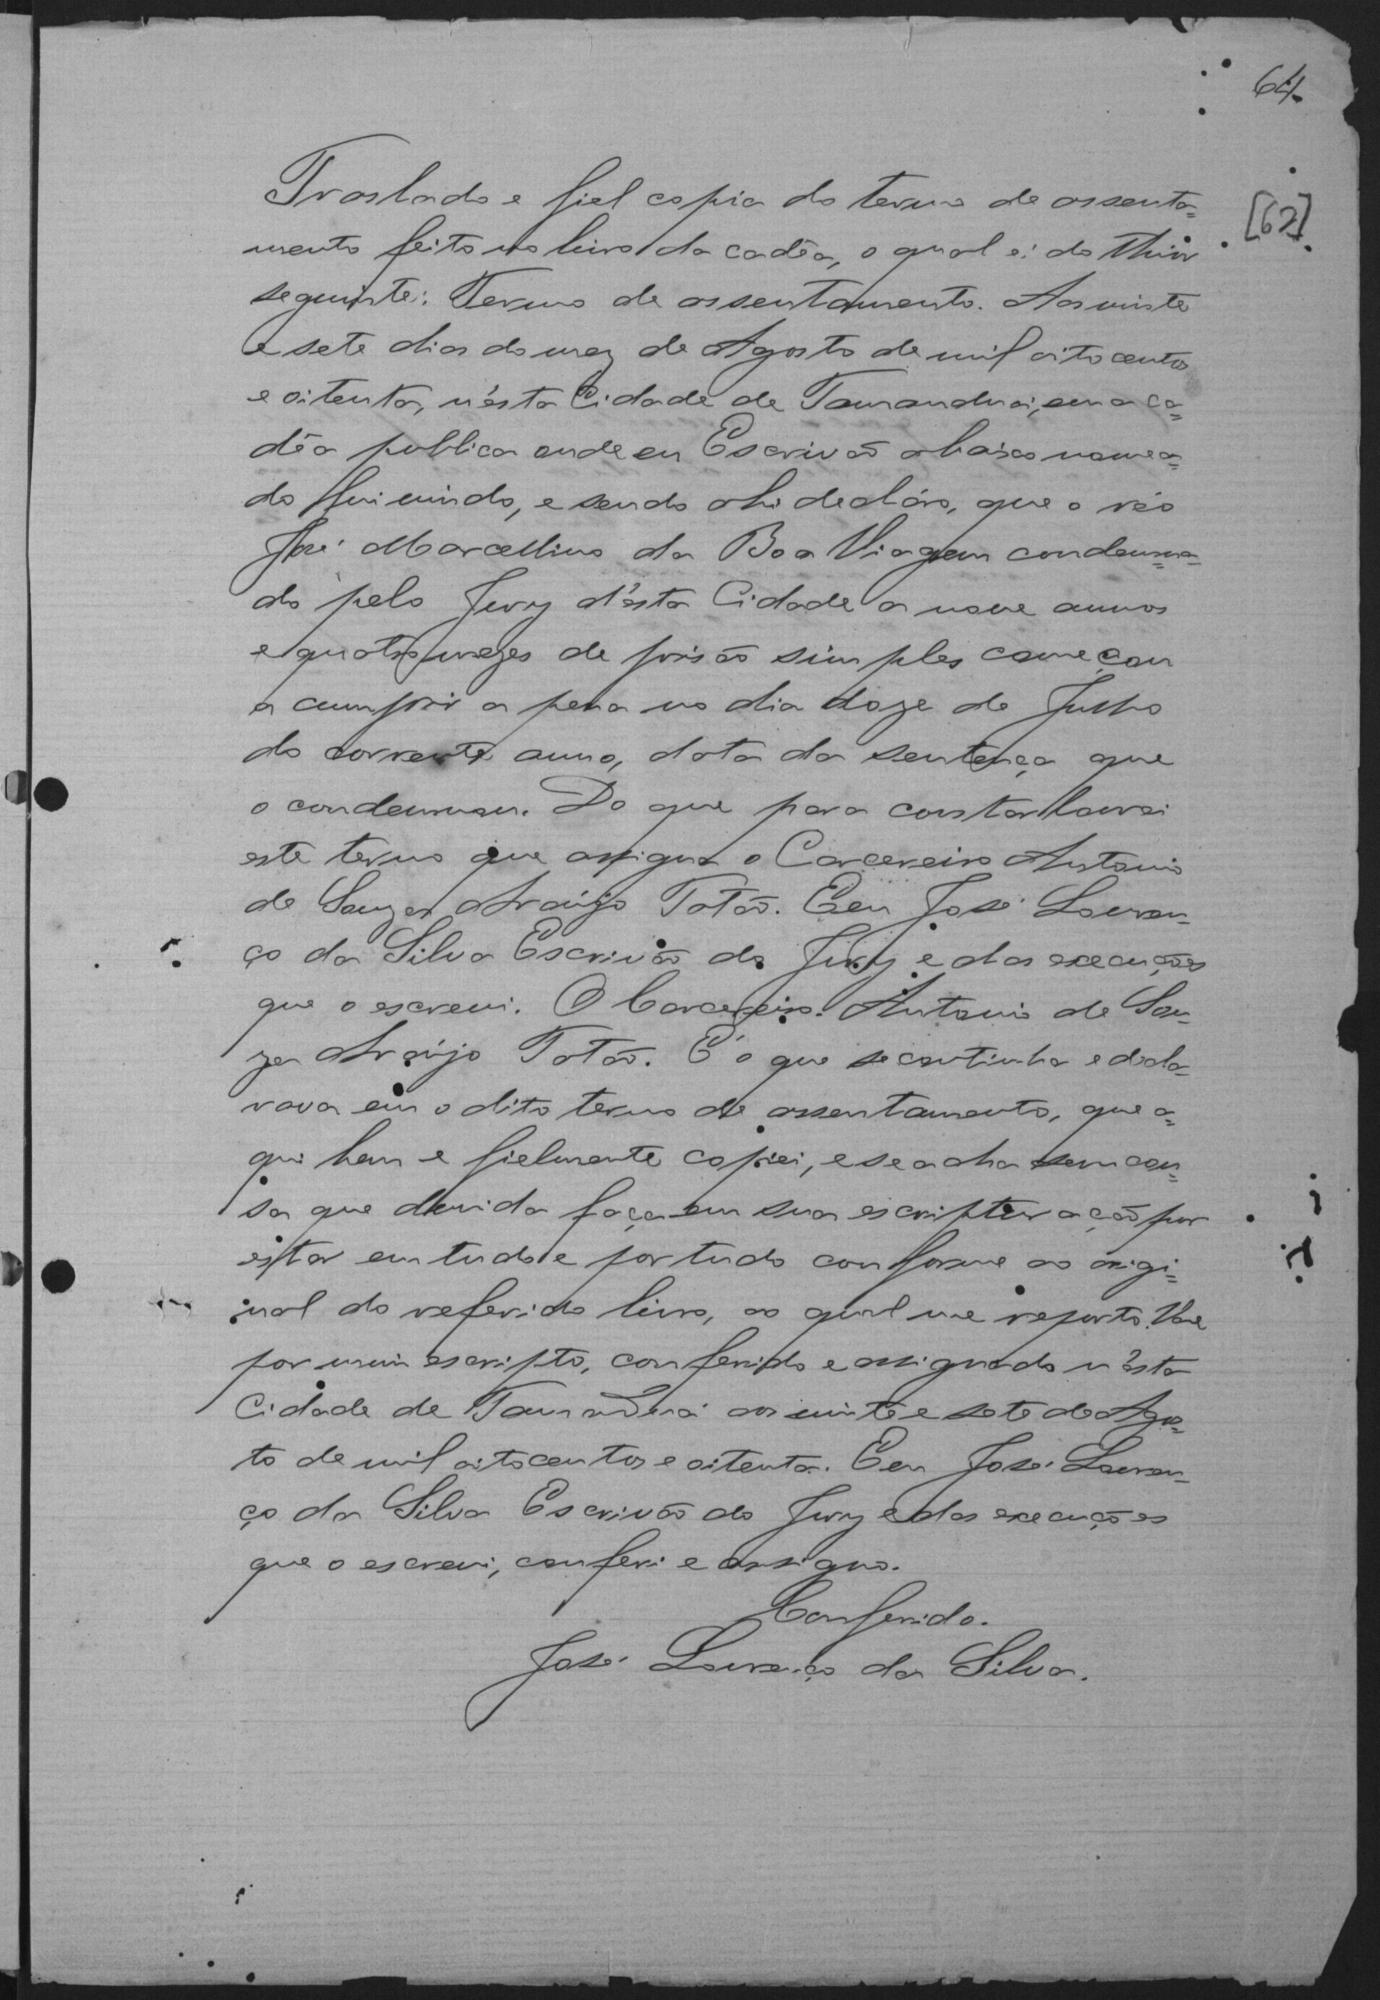 64.
[62]
Traslado e fiel copia do termo de assenta=
mento feito no livro da cadêa, o qual é do thior
seguinte: Termo de assentamento. Aos vinte
e sete dias do mez de Agosto de mil oito centos
e oitenta, n'ésta Cidade de Tamanduá, em a ca=
dêa publica onde eu Escrivão abaixo nomea=
do fui vindo, e sendo ahi declaro, que o réo
José Marcellino da Boa Viagem condemna=
do pelo Jury d'ésta Cidade a nove annos
e quatro mezes de prisão simples começou
a cumprir a pena no dia doze de Julho
do corrente anno, data da sentença que
o condemnou. Do que para constar lavrei
este termo que assigna o Carcereiro Antonio
de Souza Araújo Totão. E eu José Louren=
ço da Silva Escrivão do Jury e das execuções
que o escrevi. O Carcereiro. Antonio de Sou=
za Araújo Totão. É o que se continha e decla=
rava em o dito termo de assentamento, que a=
qui bem e fielmente copiei, e se acha sem cou=
sa que duvida faça em sua escripturação por
estar em tudo e por tudo conforme ao origi=
nal do referido livro, ao qual me reporto. Vae
por mim escripto, conferido e assignado n'ésta
Cidade de Tamanduá aos vinte e sete de Agos=
to de mil oitocentos e oitenta. E eu José Louren=
ço da Silva Escrivão do Jury e das execuções
que o escrevi, conferi e assigno.
Conferido.
José Lourenço da Silva.